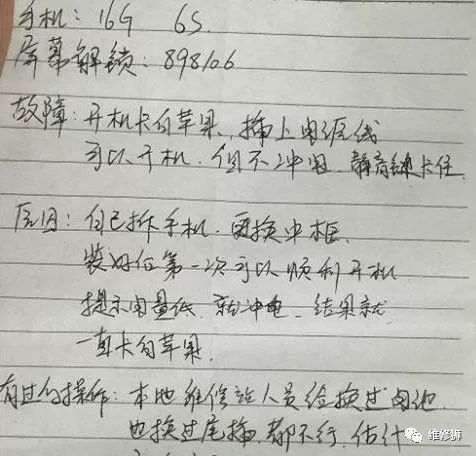 手机：16G 6S
屏幕解锁：898106
故障：开机卡白苹果，插上电源线
可以开机，但不冲电，静音键卡住
原因：自己拆手机，更换中框，
装好后第一次可以顺利开机
提示电量低，就冲电，结果就
一直卡白苹果，
有过的操作：本地维修站人员给换过电池
也换过尾插，都不行，估计
维修狮